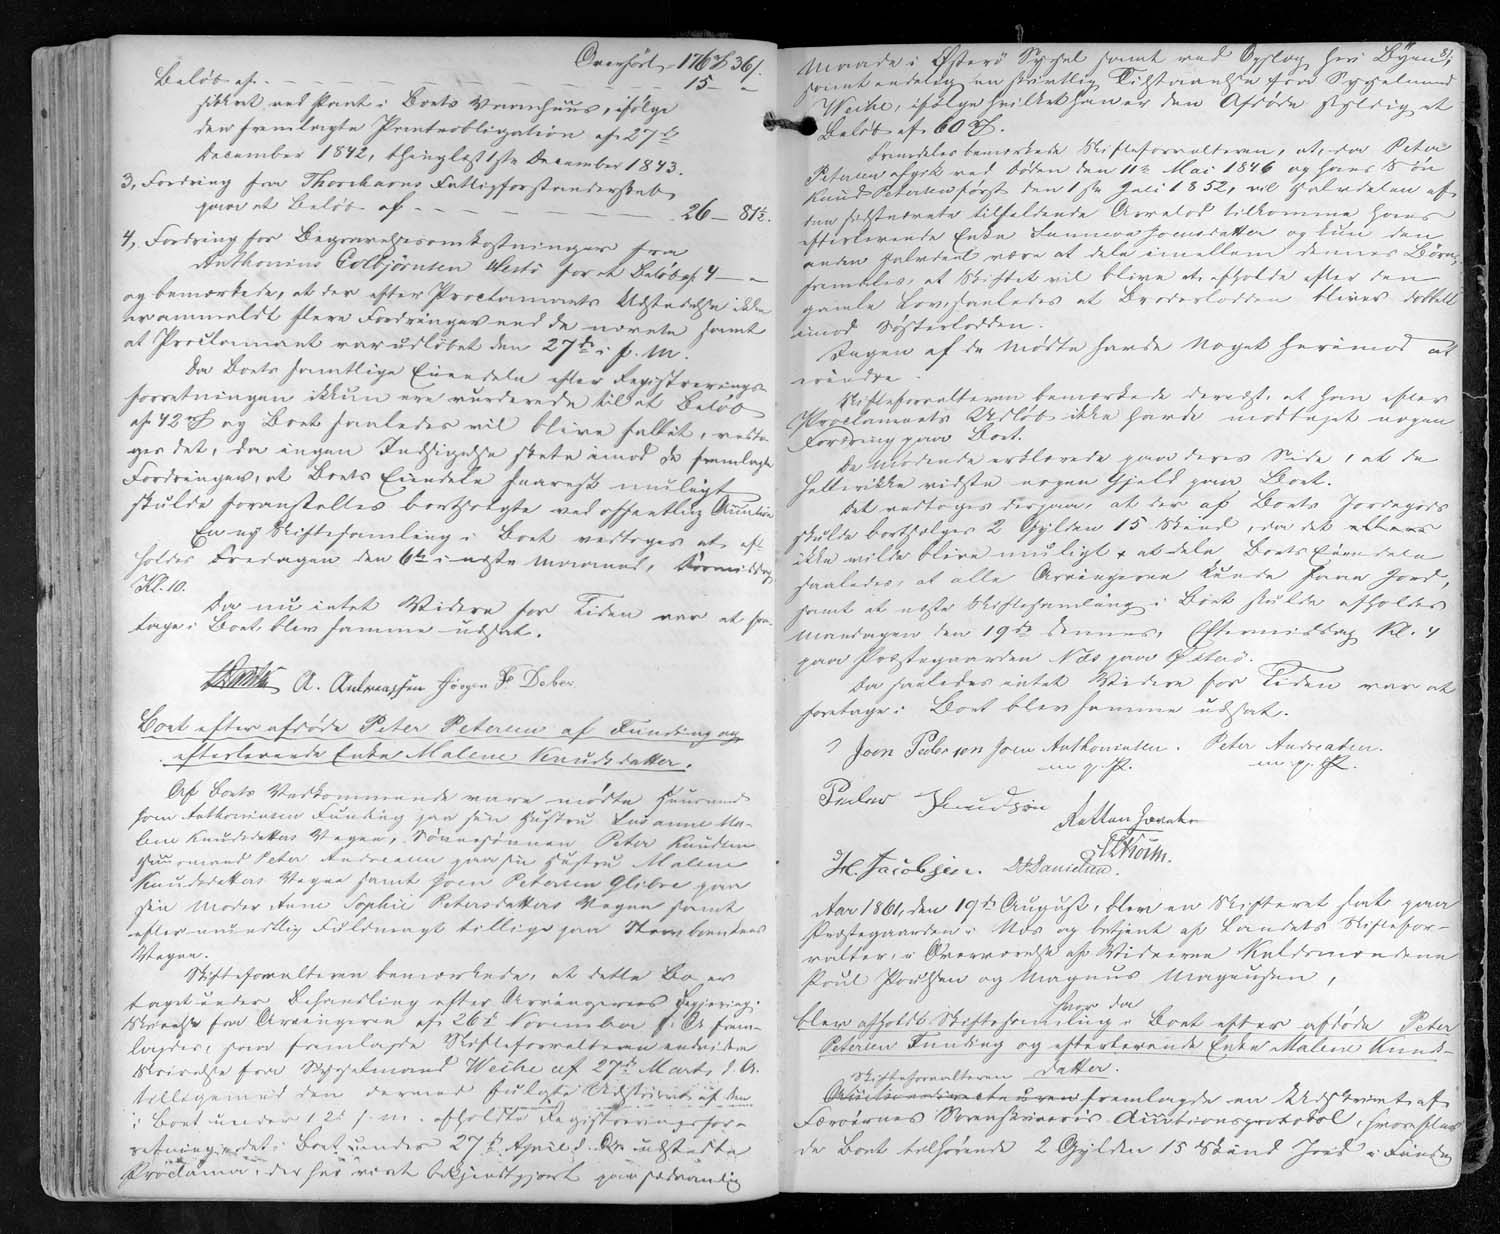 Overført 176 Rd 36 s.
Beløb af 15 – "
sikkret ved Pant i Boets Vaanhuus, ifølge
den fremlagte Panteobligation af 27de
December 1842, thinglæst 1ste December 1843.
3, Fordring fra Thorshavns Fattigforstanderskab
paa et Beløb af 26 – 81½.
4, Fordring for Begravelsesomkostninger fra
Anthonius Colbjørnsen Westø for et Beløb af 4 – "
og bemærkede, at der efter Proclamaets Udstædelse ikke
er anmeldt flere Fordringer end de nævnte samt
at Proclamaet var udløbet den 27de i f. M.
Da Boets samtlige Eiendele efter Registrerings-
forretningen ikkun ere vurderede til et Beløb
af 42 Rd og Boet saaledes vil blive fallit, vedto-
ges det, da ingen Indsigelse skete imod de fremlagte
Fordringer, at Boets Eiendele snarest muligt
skulde foranstaltes bortsolgte ved offentlig Auction
En ny Skiftesamling i Boet vedtoges at af-
holdes Fredagen den 6te i næste Maaned, Formiddag
Kl. 10.
Da nu intet Videre for Tiden var at fore-
tage i Boet blev samme udsat.
A. Andreassen Jørgen F Debes
Boet efter afdøde Peter Petersen af Funding og
efterlevende Enke Malene Knudsdatter.
Paa Boets Vedkommende vare mødte Huusmand
Joen Anthoniusen Funding paa sin Hustru Susanne Ma-
lene Knudsdatters Vegne, Sønnesønnen Peter Knudsen
Huusmand Peter Andreasen paa sin Hustru Malene
Knudsdatters Vegne samt Joen Petersen Glibre paa
sin Moder Anne Sophie Petersdatters Vegne samt
efter mundtlig Fuldmagt tillige paa
Vegne.
Skifteforvalteren bemærkede, at dette Bo er
taget under Behandling efter Arvingernes Begjering.
Skrivelse fra Arvingerne af 26de November f. A. frem-
lagdes, som fremlagde Skifteforvalteren endvidere
Skrivelse fra Sysselmand Weihe af 27de Marts d. A.
tilligemed den dermed fulgte Udskrivt af den
i Boet under 12te s. m. afholdte Registreringsfor-
retning, det i Boet under 27de April d. A. udstædte
Proclama, der har været bekjendtgjort paa sædvanlig
81.
Maade i Østerø Syssel samt ved Opslag her i Byen,
samt endelig en skrivtlig Tilstaaelse fra Sysselmand
Weihe, ifølge hvilken han er den Afdøde skyldig et
Beløb af 60 Rd.
Fremdeles bemærkede Skifteforvalteren, at, da Peter
Petersen afgik ved Døden den 11te Mai 1846 og hans Søn
Knud Petersen først den 1ste Juli 1852, vil Halvdelen af
den sidstnævnte tilfaldende Arvelod tilkomme hans
efterlevende Enke Joensdatter og kun den
anden Halvdel være at dele imellem dennes Børn,
fremdeles, at Skiftet vil blive at afholde efter den
gamle Lov, saaledes at Broderlodden bliver dobbelt
imod Søsterlodden.
Ingen af de Mødte havde Noget herimod at
erindre.
Skifteforvalteren bemærkede derefter, at han efter
Proclamaets Udløb ikke havde modtaget nogen
Fordring paa Boet.
De Mødende erklærede paa deres Side, at de
heller ikke vidste nogen Gjeld paa Boet.
Det vedtoges derpaa, at der af Boets Jordegods
skulde bortsælges 2 Gylden 15 Skind, da det ellers
ikke vilde blive muligt at dele Boets Eiendele
saaledes, at alle Arvingerne kunde faae Jord,
samt at næste Skiftesamling i Boet skulde afholdes
Mandagen den 19de dennes, Eftermiddag Kl. 4
paa Præstegaarden Næs paa Østerø.
Da saaledes intet Videre for Tiden var at
foretage i Boet blev samme udsat.
Joen Pederson Joen Anthoniusen. Peter Andreasen.
m. p. P. m. p. P.
Peder Knudsøn
H. Jacobsen. D. Danielsen.
Aar 1861, den 19de August, blev en Skifteret sat paa
Præstegaarden i Næs og betjent af Landets Skiftefor-
valter, i Overværelse af Vidnerne Kaldsmændene
Poul Poulsen og Magnus Magnusen,
hvor da
blev afholdt Skiftesamling i Boet efter afdøde Peter
Petersen Funding og efterlevende Enke Malene Knuds-
datter.
Skifteforvalteren
fremlagde en Udskrivt af
Færøernes Sorenskriveris Auctionsprotokol, hvorefter
de Boet tilhørende 2 Gylden 15 Skind Jord i Funding